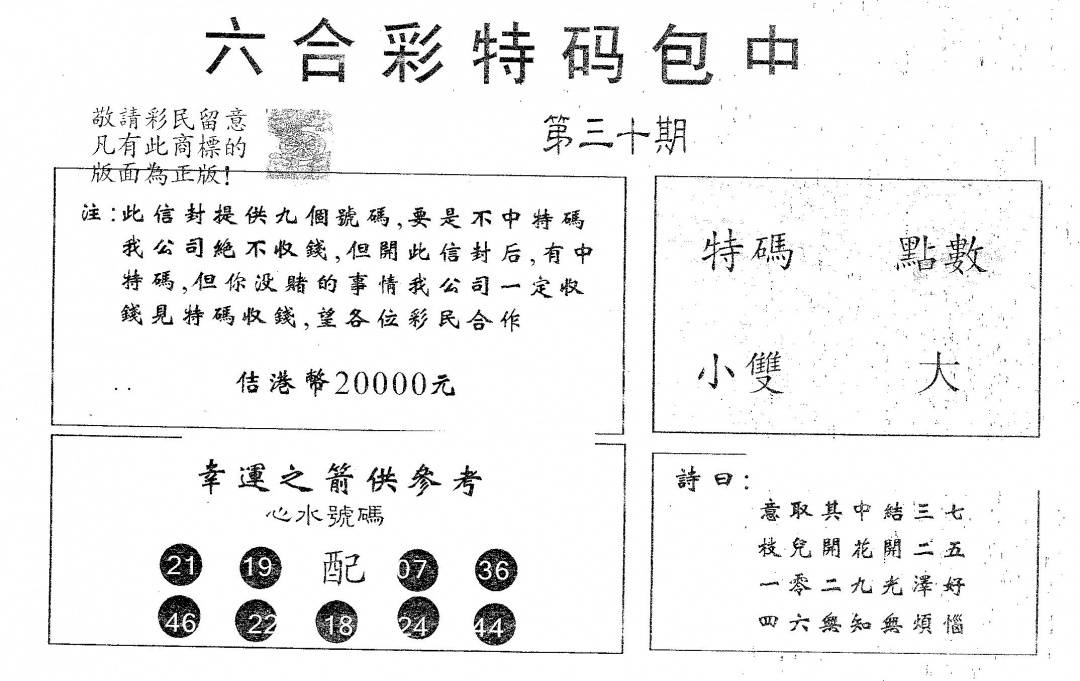 六合彩特码包中
敬請彩民留意
凡有此商標的
版面為正版!
第三十期
注:此信封提供九個號碼,要是不中特碼
我公司絕不收錢,但開此信封后,有中
特碼,但你没賭的事情我公司一定收
錢見特碼收錢,望各位彩民合作
佶港幣20000元
特碼 點數
小雙 大
幸運之箭供參考
心水號碼
21 19 配 07 36
46 22 18 24 44
詩曰:
意取其中結三七
枝兒開花開二五
一零二九光澤好
四六無知無煩惱